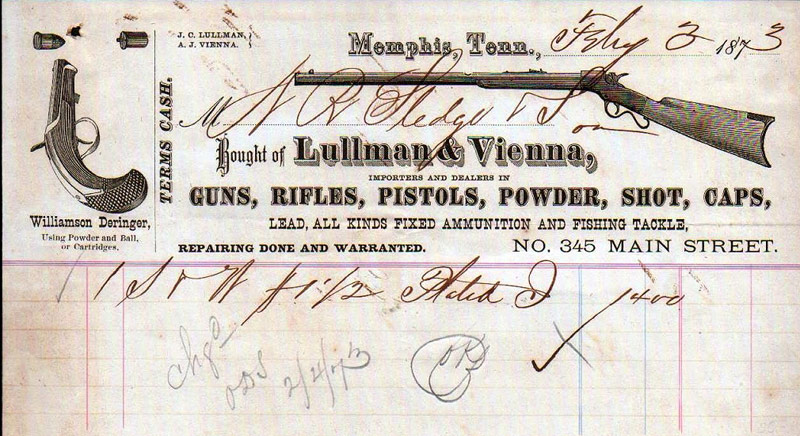 J. C. LULLMAN,
A. J. VIENNA.
Memphis, Tenn., Feby 3 1873
M N R Sledge & Son
TERMS CASH.
Bought of Lullman & Vienna,
IMPORTERS AND DEALERS IN
GUNS, RIFLES, PISTOLS, POWDER, SHOT, CAPS,
LEAD, ALL KINDS FIXED AMMUNITION AND FISHING TACKLE,
REPAIRING DONE AND WARRANTED. NO. 345 MAIN STREET.
Williamson Deringer,
Using Powder and Ball,
or Cartridges.
1 S & W #1 1/2 Plated 1400
Chgd
2/4/73